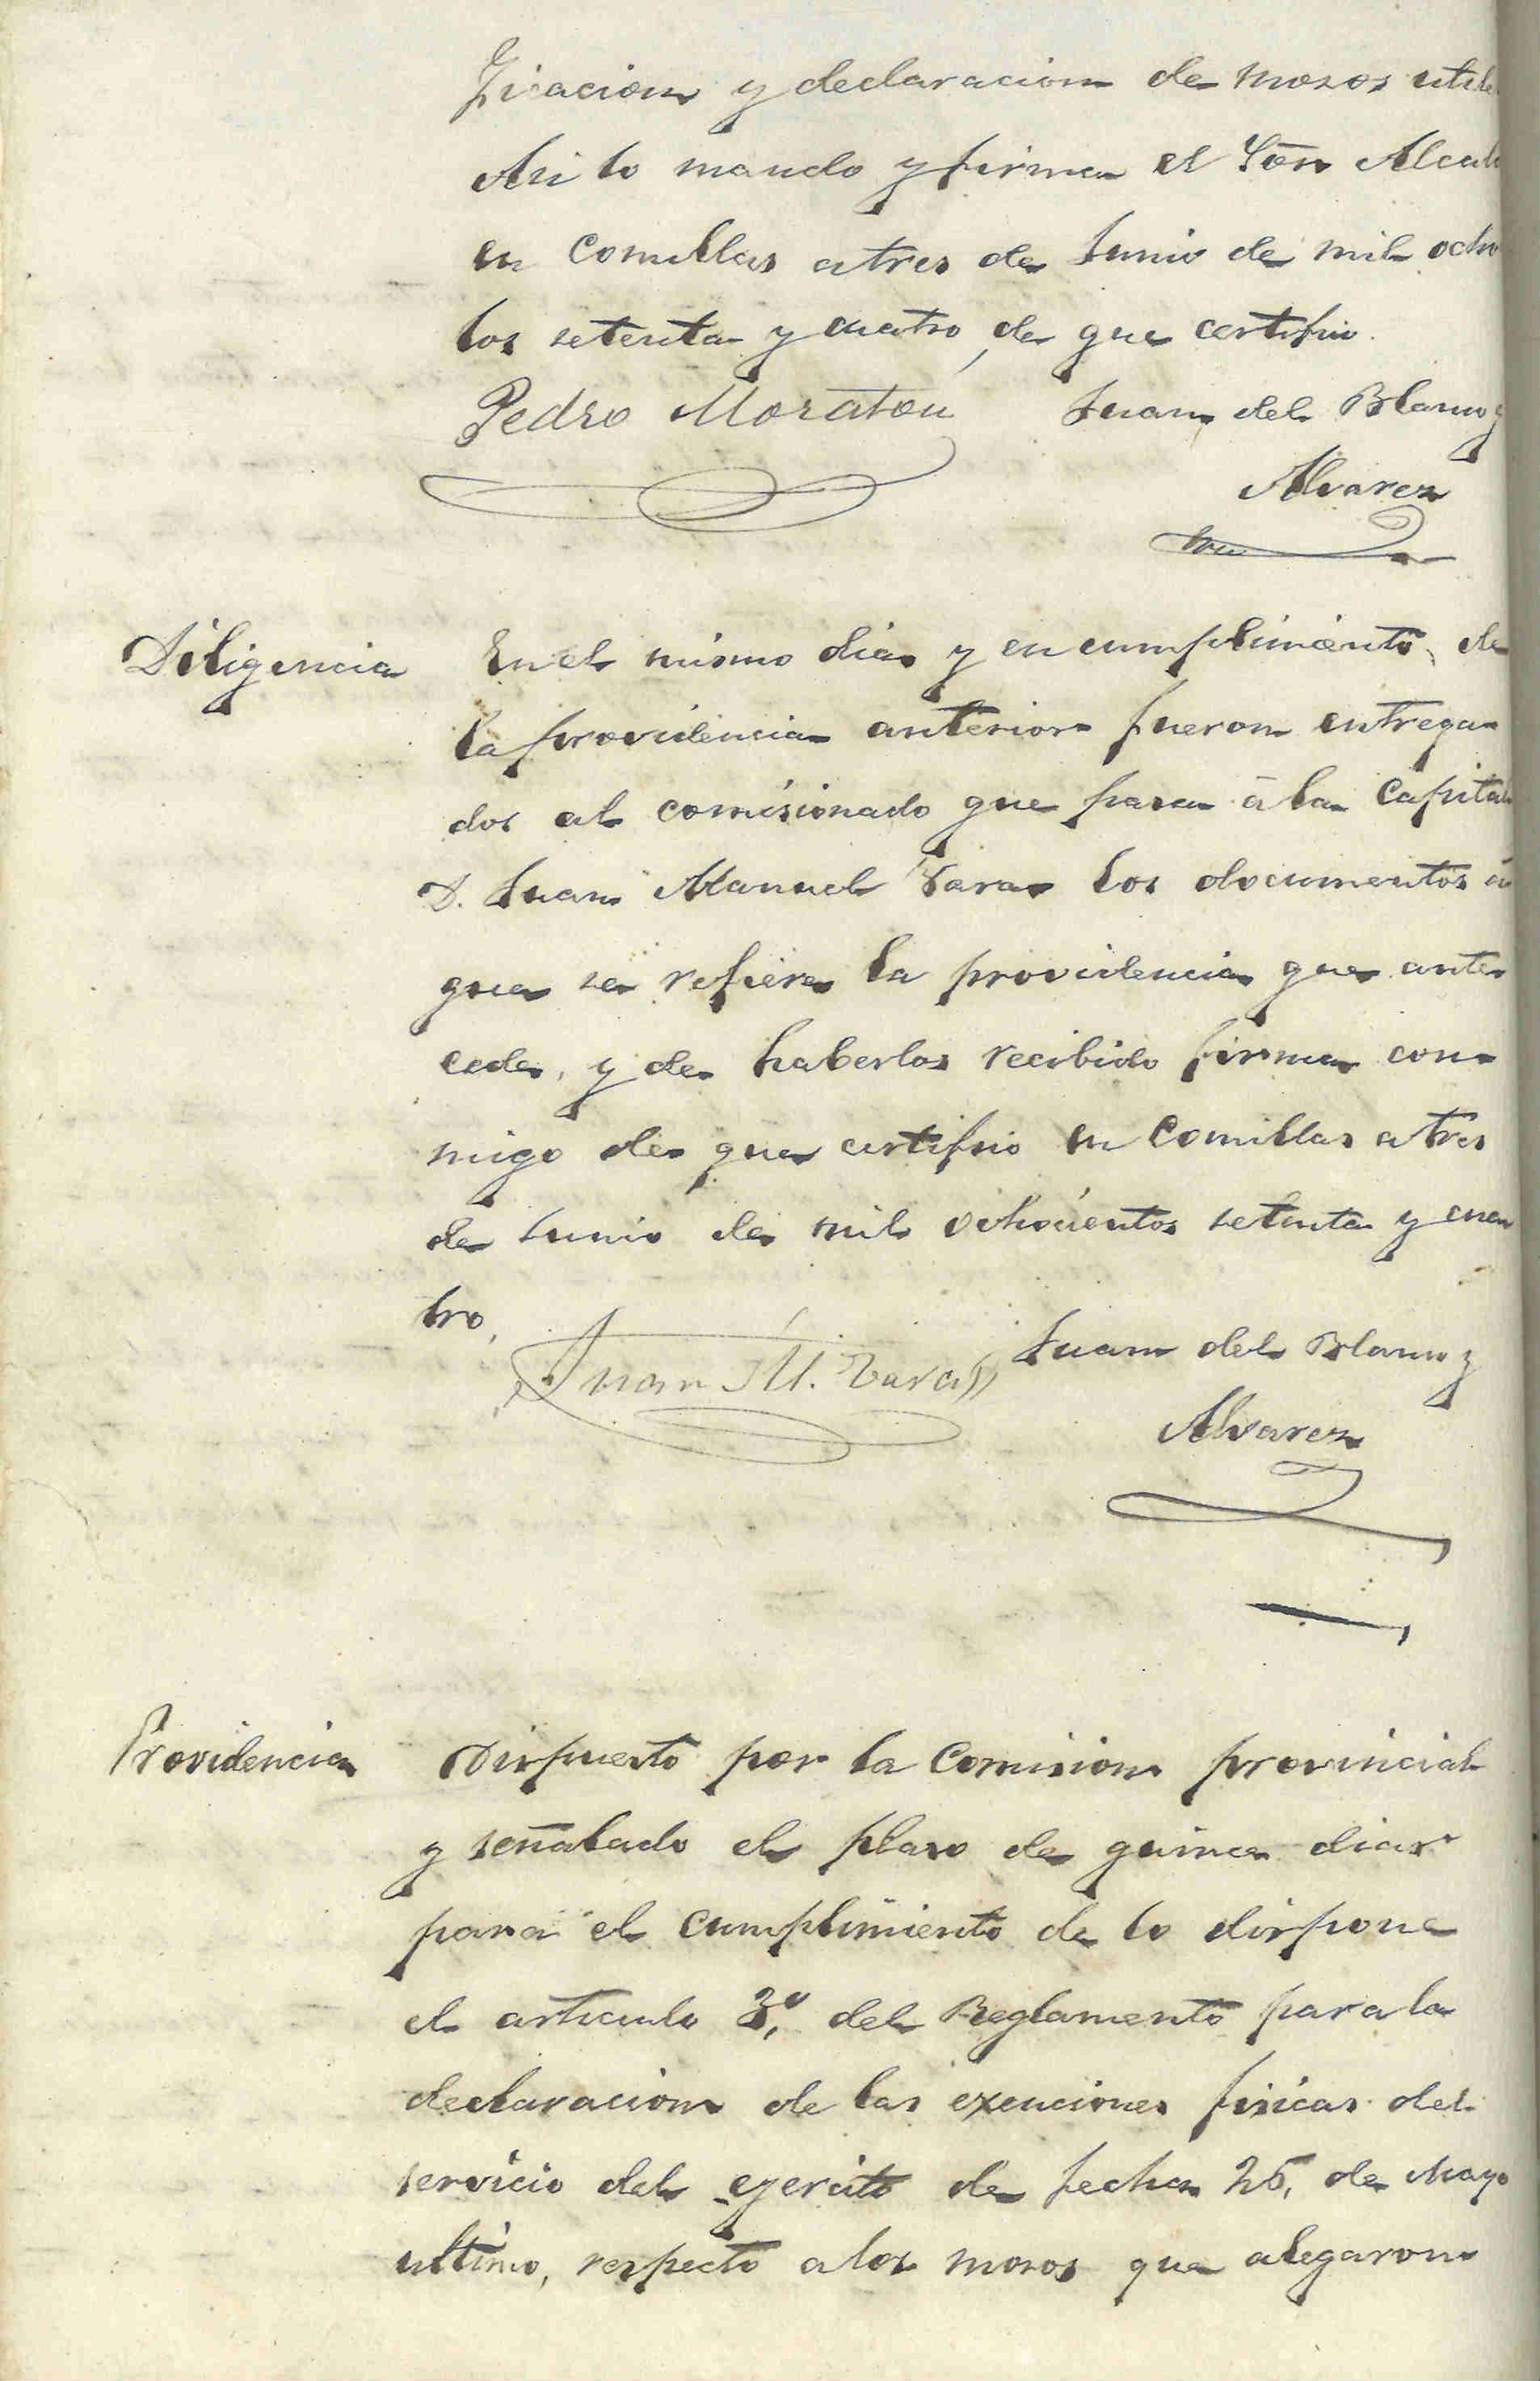 ficacion y declaracion de mozos utile
Asi lo mando y firma el Sõr Alcal
en Comillas a tres de Junio de mil ocho
tos setenta y cuatro, de que certifico.
Pedro Moratou Juan del Blanco y
Alvarez
Diligencia En el mismo dia y en cumplimiento de
la providencia anterior fueron entrega-
dos al comisionado que pasa á la Capital
D. Juan Manuel Vara los documentos á
que se refiere la providencia que ante-
cede, y de haberlos recibido firma con-
migo de que certifico en Comillas a tres
de Junio de mil ochocientos setenta y cua
tro,
Juan M. Vara Juan del Blanco y
Alvarez
Providencia Dispuesto por la Comision provincial
y señalado el plazo de quince dias
para el cumplimiento de lo dispone
el articulo 3º, del Reglamento para la
declaracion de las exenciones fisicas del
servicio del ejercito de fecha 25, de Mayo
ultimo, respecto a los mozos que alegaron